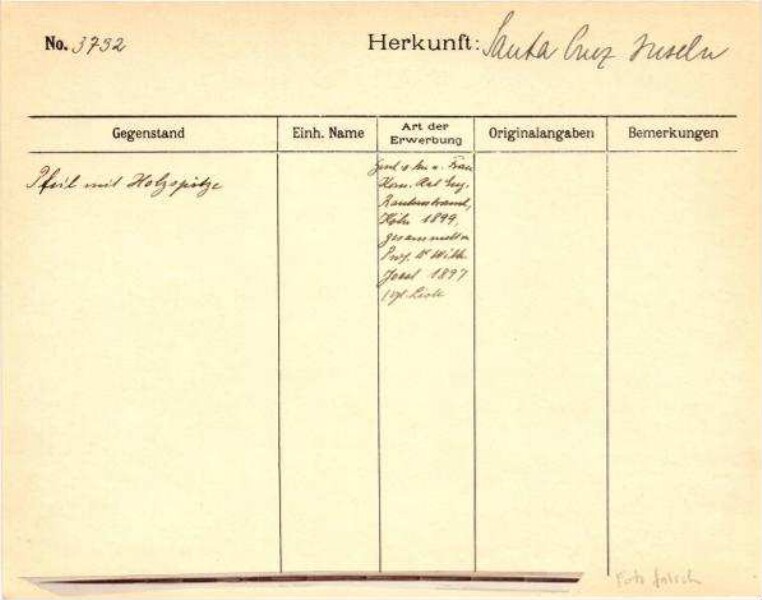 No. 3732
Herkunft: Santa Cruz Inseln
Gegenstand
Einh. Name
Art der
Erwerbung
Originalangaben
Bemerkungen
Pfeil mit Holzspitze
Frau
Kom. Rat Eug.
Rautenstrauch,
Köln 1899,
gesammelt v.
Prof. Dr Wilh.
Joest 1897
Foto falsch